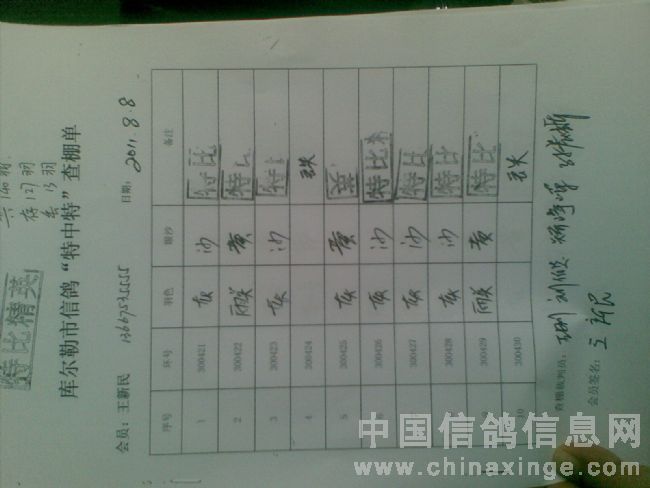 共140羽
存127羽
丢13羽
特比精英
库尔勒市信鸽“特中特”查棚单
会员:王新民 13667535555 日期:2011.8.8
序号 环号 羽色 眼沙 备注
1 300421 灰 沙 特比
2 300422 雨灰 黄 特比
3 300423 灰 沙 特比
4 300424 丢失
5 300425 灰 黄 英
6 300426 灰 沙 特比米
7 300427 灰 沙 特比
8 300428 灰 沙 特比
9 300429 雨灰 黄 特比
10 300430 丢失
查棚裁判员:
会员签名:王新民
中国信鸽信息网
www.chinaxinge.com